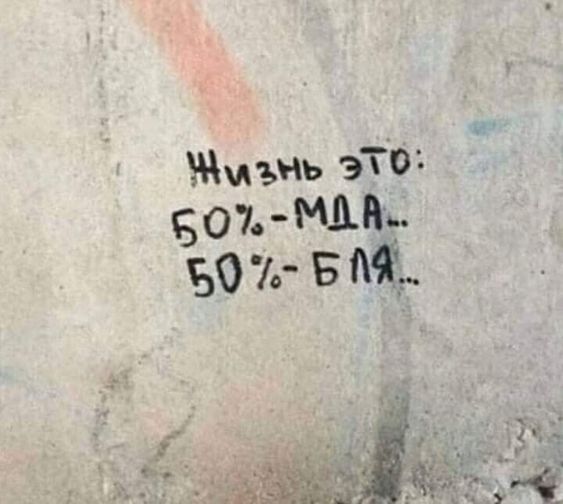 Жизнь это:
50%-МДА...
50%-БЛЯ...